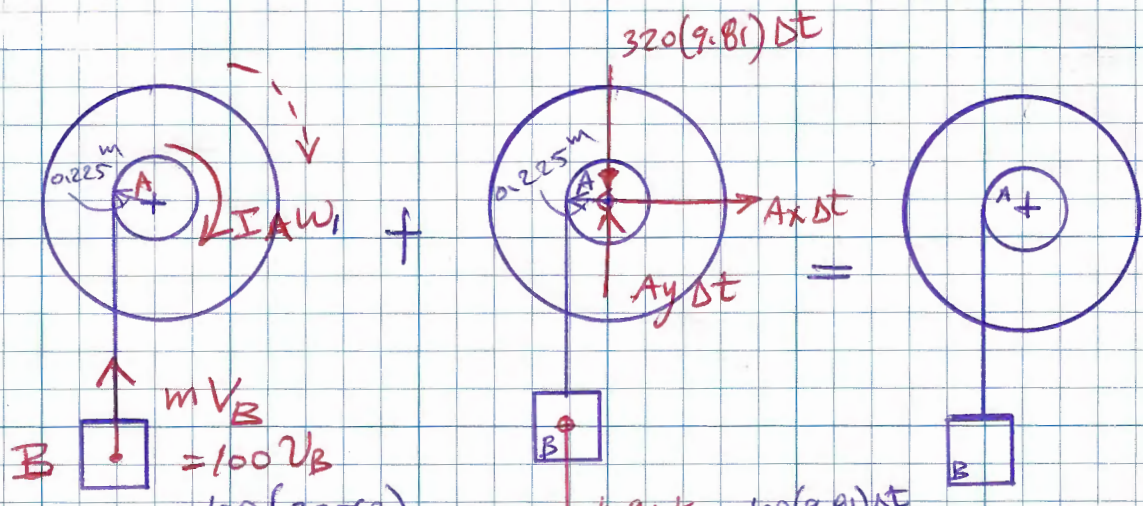 320(9.81) Δt
0.225 m
A
I_A ω₁
+
0.225 m
A
Ax Δt
=
A
Ay Δt
m V_B
= 100 V_B
B
B
B